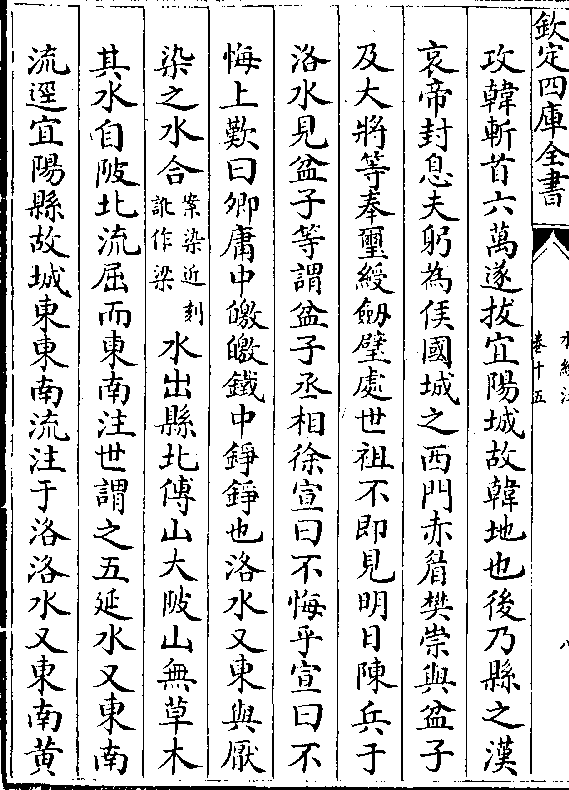 欽定四庫全書
水經注
卷十五
八
攻韓斬首六萬遂拔宜陽城故韓地也後乃縣之漢
哀帝封息夫躬為侯國城之西門赤眉樊崇與盆子
及大將等奉璽綬劒璧處世祖不即見明日陳兵于
洛水見盆子等謂盆子丞相徐宣曰不悔乎宣曰不
悔上歎曰卿庸中皦皦鐵中錚錚也洛水又東與厭
染之水合案染近刻訛作梁水出縣北傅山大陂山無草木
其水自陂北流屈而東南注世謂之五延水又東南
流逕宜陽縣故城東東南流注于洛洛水又東南黄